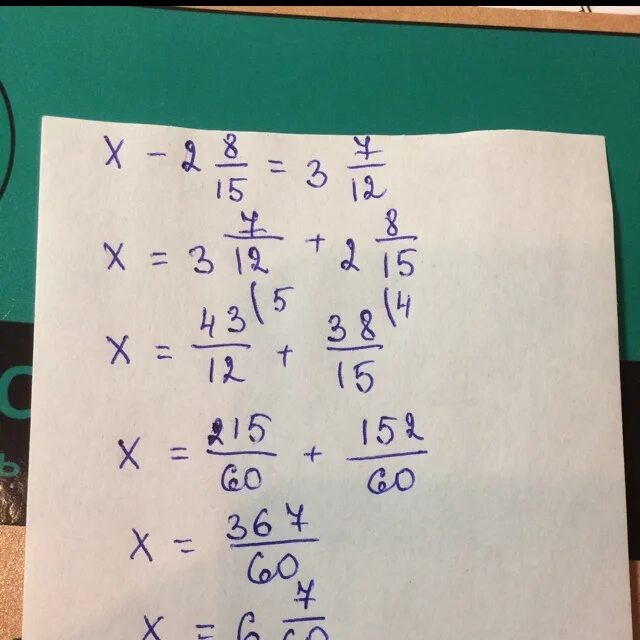 x - 2 8/15 = 3 7/12
x = 3 7/12 + 2 8/15
x = 43/12 (5 + 38/15 (4
x = 215/60 + 152/60
x = 367/60
x = 6 7/60